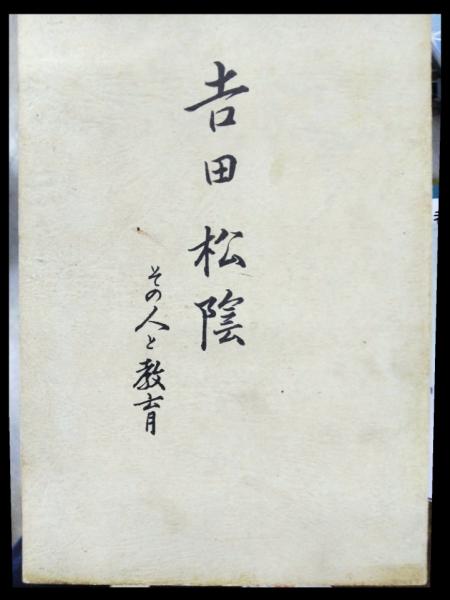 𠮷田松陰
その人と教育